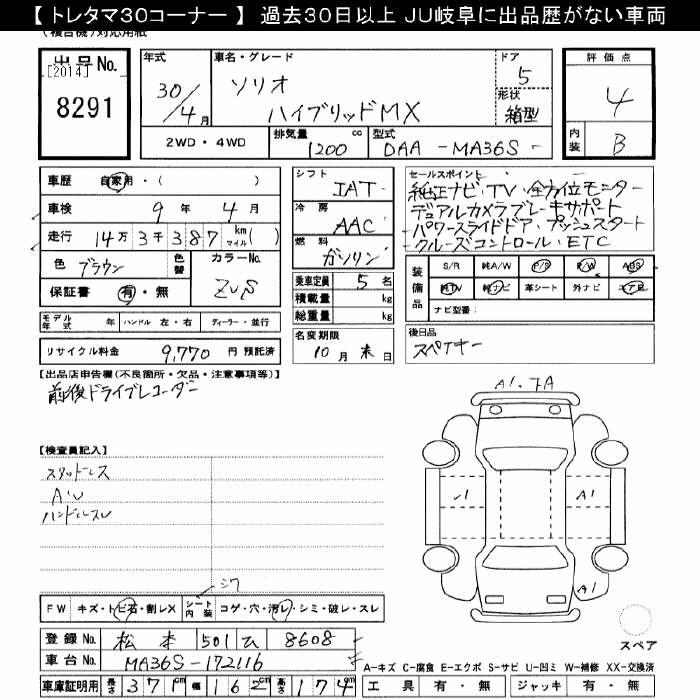 【トレタマ30コーナー】 過去30日以上 JU岐阜に出品歴がない車両
(複合機)対応用紙
出品No.
[2014]
8291
年式
30/4月
車名・グレード
ソリオ
ハイブリッドMX
ドア
5
形状
箱型
評価点
4
内装
B
2WD・4WD
排気量
1200 cc
型式
DAA -MA36S-
車歴 自家用・( )
車検 9年 4月
走行 14万3千387 km マイル( )
色 ブラウン 色替
カラーNo.
ZVS
保証書 有・無
モデル年式 年 ハンドル 左・右 ディーラー・並行
リサイクル料金 9,770 円 預託済
シフト
IAT
冷房
AAC
燃料
ガソリン
乗車定員 5 名
積載量 kg
総重量 kg
名変期限
10月末日
セールスポイント
純正ナビ・TV・全方位モニター
デュアルカメラブレーキサポート
パワースライドドア・プッシュスタート
クルーズコントロール・ETC
装備品
S/R 純A/W P/S P/W ABS
純TV 純ナビ 革シート 外ナビ エアB
ナビ型番:
後日品
スペアキー
【出品店申告欄(不良箇所・欠品・注意事項等)】
前後ドライブレコーダー
【検査員記入】
スタッドレス
ハンドルスレ
シワ
FW キズ・トビ石・割レX
シート内装 コゲ・穴・汚レ・シミ・破レ・スレ
登録No. 松本 501 ひ 8608
車台No. MA36S-172116
車庫証明用 長さ 371cm 幅 162cm 高さ 174cm
A1
A1
A1
スペア
A-キズ C-腐食 E-エクボ S-サビ U-凹ミ W-補修 XX-交換済
工具 有・無 ジャッキ 有・無